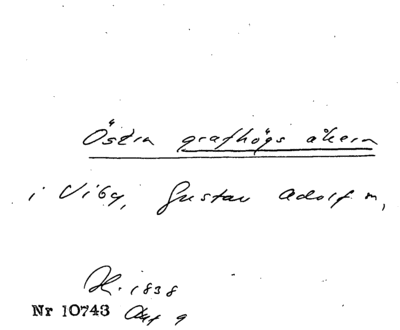 Östra grafhögs åkern
i Viby, Gustav Adolf m,
H. 1838
Nr 10743 Akt 9